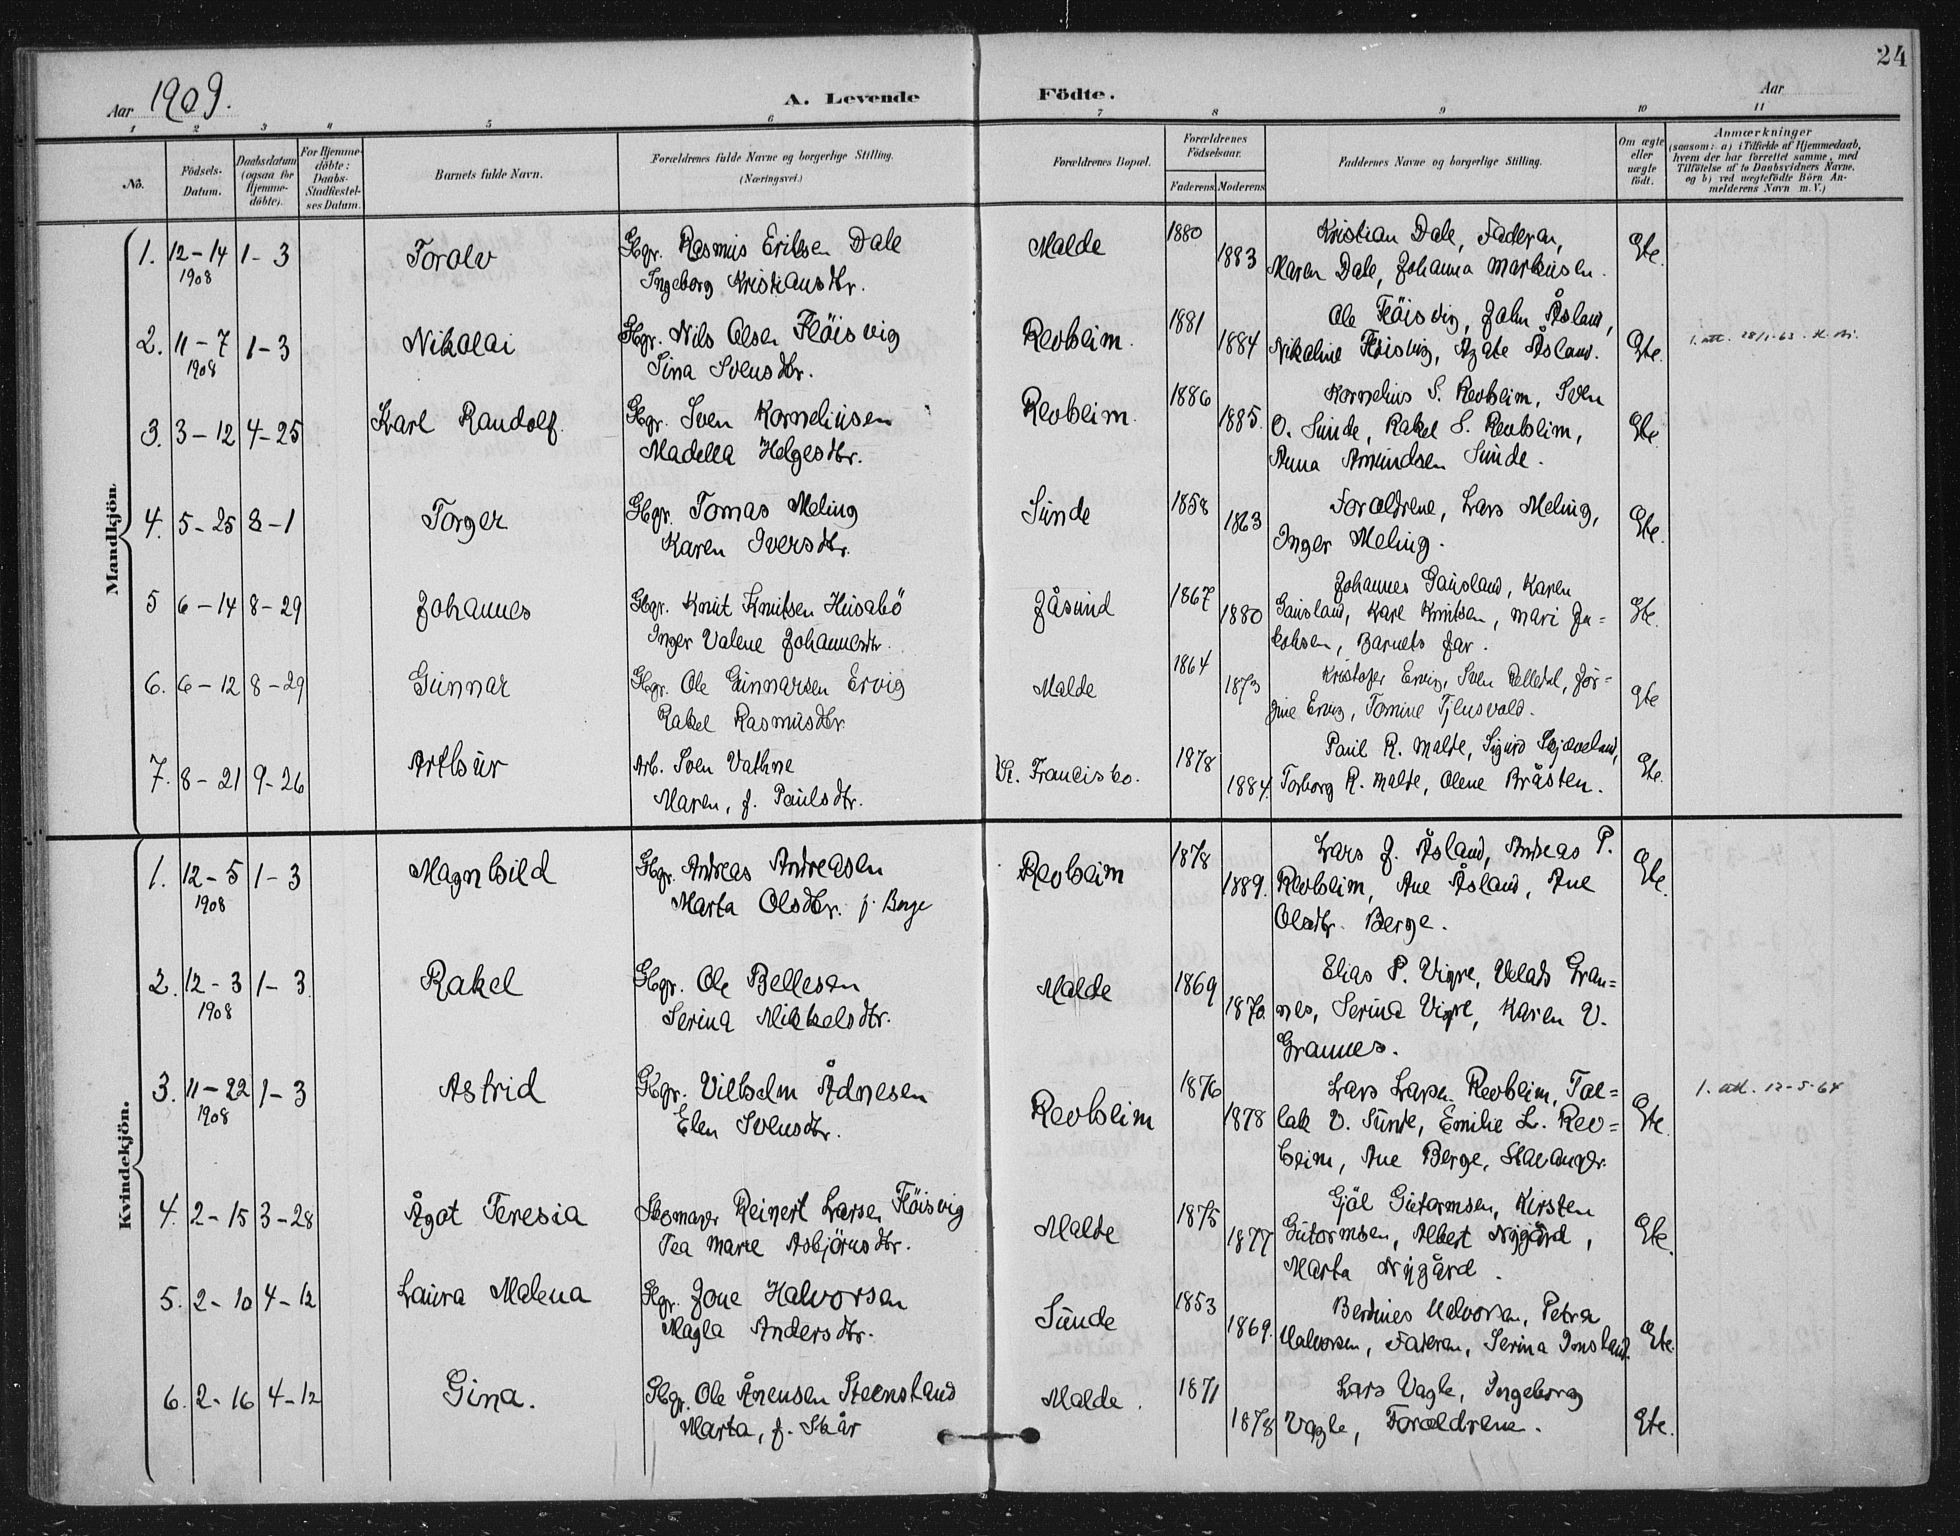 24
Aar 1909.
A. Levende Födte.
Aar
1 2 3 4 5 6 7 8 9 10 11
No.
Födsels-
Datum.
Daabsdatum
(ogsaa for
Hjemme-
döbte).
For Hjemme-
döbte:
Daabs-
Stadfæstel-
ses Datum.
Barnets fulde Navn.
Forældrenes fulde Navne og borgerlige Stilling.
(Næringsvei.)
Forældrenes Bopæl.
Forældrenes
Födselsaar.
Faderens. Moderens.
Faddernes Navne og borgerlige Stilling.
Om ægte
eller
uægte
födt.
Anmærkninger
(saasom: a) i Tilfælde af Hjemmedaab,
hvem der har forrettet samme, med
Tilföielse af to Daabsvidners Navne.
og b) ved uægtefödte Börn An-
melderens Navn m. V.)
Mandkjön
1. 12-14 1908 1-3 Toralv
Gbgr. Rasmus Eriksen Dale
Ingeborg Kristiansdtr.
Malde 1880 1883
Kristian Dale, Faderen,
Maren Dale, Johanna Markusen.
Gte.
2. 11-7 1908 1-3 Nikolai
Gbgr. Nils Olsen Flöisvig
Sina Svensdtr.
Revheim. 1881 1884
Ole Flöisvig, John Åsland,
Nikoline Flöisvig, Agate Åsland.
Gte.
1. att. 28/1-63.
3. 3-12 4-25 Karl Randolf
Gbgr. Sven Korneliusen
Madella Helgesdtr.
Revheim. 1886 1885.
Kornelius S. Revheim, Sven
O. Sunde, Rakel S. Revheim,
Anna Amundsen Sunde.
Gte.
4. 5-25 8-1 Torger
Gbgr. Tomas Meling
Karen Iversdtr.
Sunde 1858 1863
Forældrene, Lars Meling,
Inger Meling.
Gte.
5 6-14 8-29 Johannes
Gbgr. Knut Knutsen Husabö
Inger Valene Johannesdtr.
Jåsund 1867 1880
Johannes Gausland, Karen
Gausland, Kare Knutsen, Mari Ja=
kobsen, Barnets far.
Gte.
6. 6-12 8-29 Gunnar
Gbgr. Ole Gunnarsen Ervig
Rakel Rasmusdtr.
Malde 1864 1873
Kristofer Ervig, Sven Relledal, Jör=
gine Ervig, Tomine Tjensvold.
Gte
7. 8-21 9-26 Arthur
Arb. Sven Vathne
Maren, f. Paulsdtr.
St. Francisko. 1878 1884.
Paul R. Malde, Sigurd Skjæveland,
Torborg R. Malde, Olene Bråsten.
Gte.
Kvindekjön.
1. 12-5 1908 1-3 Magnhild
Gbgr. Andreas Andreasen
Marta Olsdtr. f. Berge
Revheim 1878 1889.
Lars J. Åsland, Andreas P.
Revheim, Ane Åsland, Ane
Olsdtr. Berge.
Gte.
2. 12-3 1908 1-3 Rakel
Gbgr. Ole Bellesen
Serina Mikkelsdtr.
Malde 1869 1870.
Elias P. Vigre, Velads Gran=
nes, Serina Vigre, Karen V.
Grannes.
3. 11-22 1908 1-3 Astrid
Gbgr. Vilhelm Ådnesen
Elen Svensdtr.
Revheim 1876 1878
Lars Larsen Revheim, Tol=
lak V. Sunde, Emilie L. Rev=
heim, Ane Berge, Stavanger.
Gte.
1. att. 12-5-64
4. 2-15 3-28 Ågot Teresia
Skomager Reinert Larsen Flöisvig
Tea Marie Asbjörnsdtr.
Malde 1875 1877
Gjöl Gutormsen, Kirsten
Gutormsen, Albert Nygård,
Marta Nygård.
Gte.
5. 2-10 4-12 Laura Malena
Gbgr. Jone Halvorsen
Magla Andersdtr.
Sunde 1853 1869.
Bertines Halvorsen, Petra
Halvorsen, Faderen, Serina Imsland.
Gte.
6. 2-16 4-12 Gina.
Gbgr. Ole Ånensen Steensland
Marta, f. Skår
Malde. 1871 1878
Lars Vagle, Ingeborg
Vagle, Forældrene.
Gte.